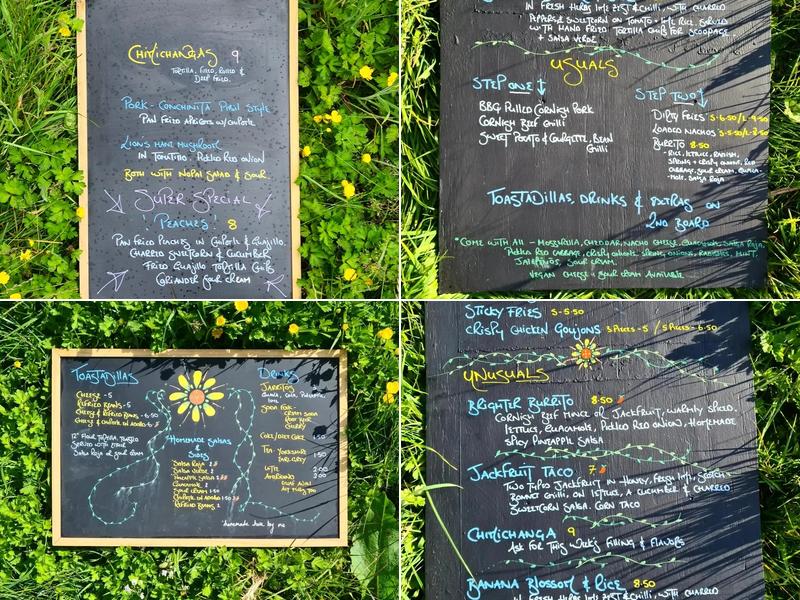 CHIMICHANGAS 9
TORTILLA, FILLED, ROLLED &
DEEP FRIED.
PORK - CONCHINITA PIBIL STYLE
PAN FRIED APRICOTS W/ CHIPOTLE
LIONS MANE MUSHROOM
IN TOMATILLO - PICKLED RED ONION
BOTH WITH NOPAL SALAD & SOUR
SUPER SPECIAL
'PEACHES' 8
PAN FRIED PEACHES IN CHIPOTLE & GUAJILLO.
CHARRED SWEETCORN & CUCUMBER
FRIED GUAJILLO TORTILLA CHIPS
CORIANDER SOUR CREAM
IN FRESH HERBS LIME ZEST & CHILLI, WITH CHARRED
PEPPERS & SWEETCORN ON TOMATO & LIME RICE. SERVED
WITH HAND FRIED TORTILLA CHIPS FOR SCOOPAGE
+ SALSA VERDE
USUALS
STEP ONE
BBQ PULLED CORNISH PORK
CORNISH BEEF CHILLI
SWEET POTATO & COURGETTE, BEAN
CHILLI
STEP TWO
DIRTY FRIES S-6.50/L-9.50
LOADED NACHOS S-5.50/L-8.50
BURRITO 8.50
- RICE, LETTUCE, RADISH,
SPRING + CRISPY ONION, RED
CABBAGE, SOUR CREAM, GUACA-
-MOLE, SALSA ROJA
TOASTADILLAS, DRINKS & EXTRAS ON
2ND BOARD
*COME WITH ALL - MOZZARELLA, CHEDDAR, NACHO CHEESE, GUACAMOLE, SALSA ROJA,
PICKLED RED CABBAGE, CRISPY ONIONS, SPRING ONIONS, RADISHES, MINT,
JALAPEÑOS, SOUR CREAM.
VEGAN CHEESE + SOUR CREAM AVAILABLE
TOASTADILLAS
CHEESE - 5
REFRIED BEANS - 5
CHEESE & REFRIED BEANS - 6.50
CHEESE & CHIPOTLE IN ADOBO 6
12" FLOUR TORTILLA TOASTED
SERVED WITH EITHER
SALSA ROJA OR SOUR CREAM
HOMEMADE SALSAS
&
SIDES
SALSA ROJA 2
SALSA VERDE 2
PINEAPPLE SALSA 2
GUACAMOLE 2
SOUR CREAM 1.50
CHIPOTLE IN ADOBO 1.50
REFRIED BEANS 2
DRINKS
JARRITOS
GUAVA, COLA, PINEAPPLE,
LIME
SODA FOLK
CREAM SODA
ROOT BEER
CHERRY
COKE/DIET COKE 1.50
TEA - YORKSHIRE 1.50
EARL GREY
LATTE 2.00
AMERICANO 2.00
*homemade here by me
STICKY FRIES S-5.50
CRISPY CHICKEN GOUJONS 3 PIECES - 5 / 5 PIECES - 6.50
UNUSUALS
BRIGHTER BURRITO 8.50
CORNISH BEEF MINCE OR JACKFRUIT, WARMLY SPICED.
LETTUCE, GUACAMOLE, PICKLED RED ONION, HOMEMADE
SPICY PINEAPPLE SALSA
JACKFRUIT TACO 7
TWO TACOS JACKFRUIT IN HONEY, FRESH LIME, SCOTCH
BONNET CHILLI, ON LETTUCE, A CUCUMBER & CHARRED
SWEETCORN SALSA. CORN TACO
CHIMICHANGA 9
ASK FOR THIS WEEK'S FILLING & FLAVORS
BANANA BLOSSOM & RICE 8.50
IN FRESH HERBS LIME ZEST & CHILLI, WITH CHARRED